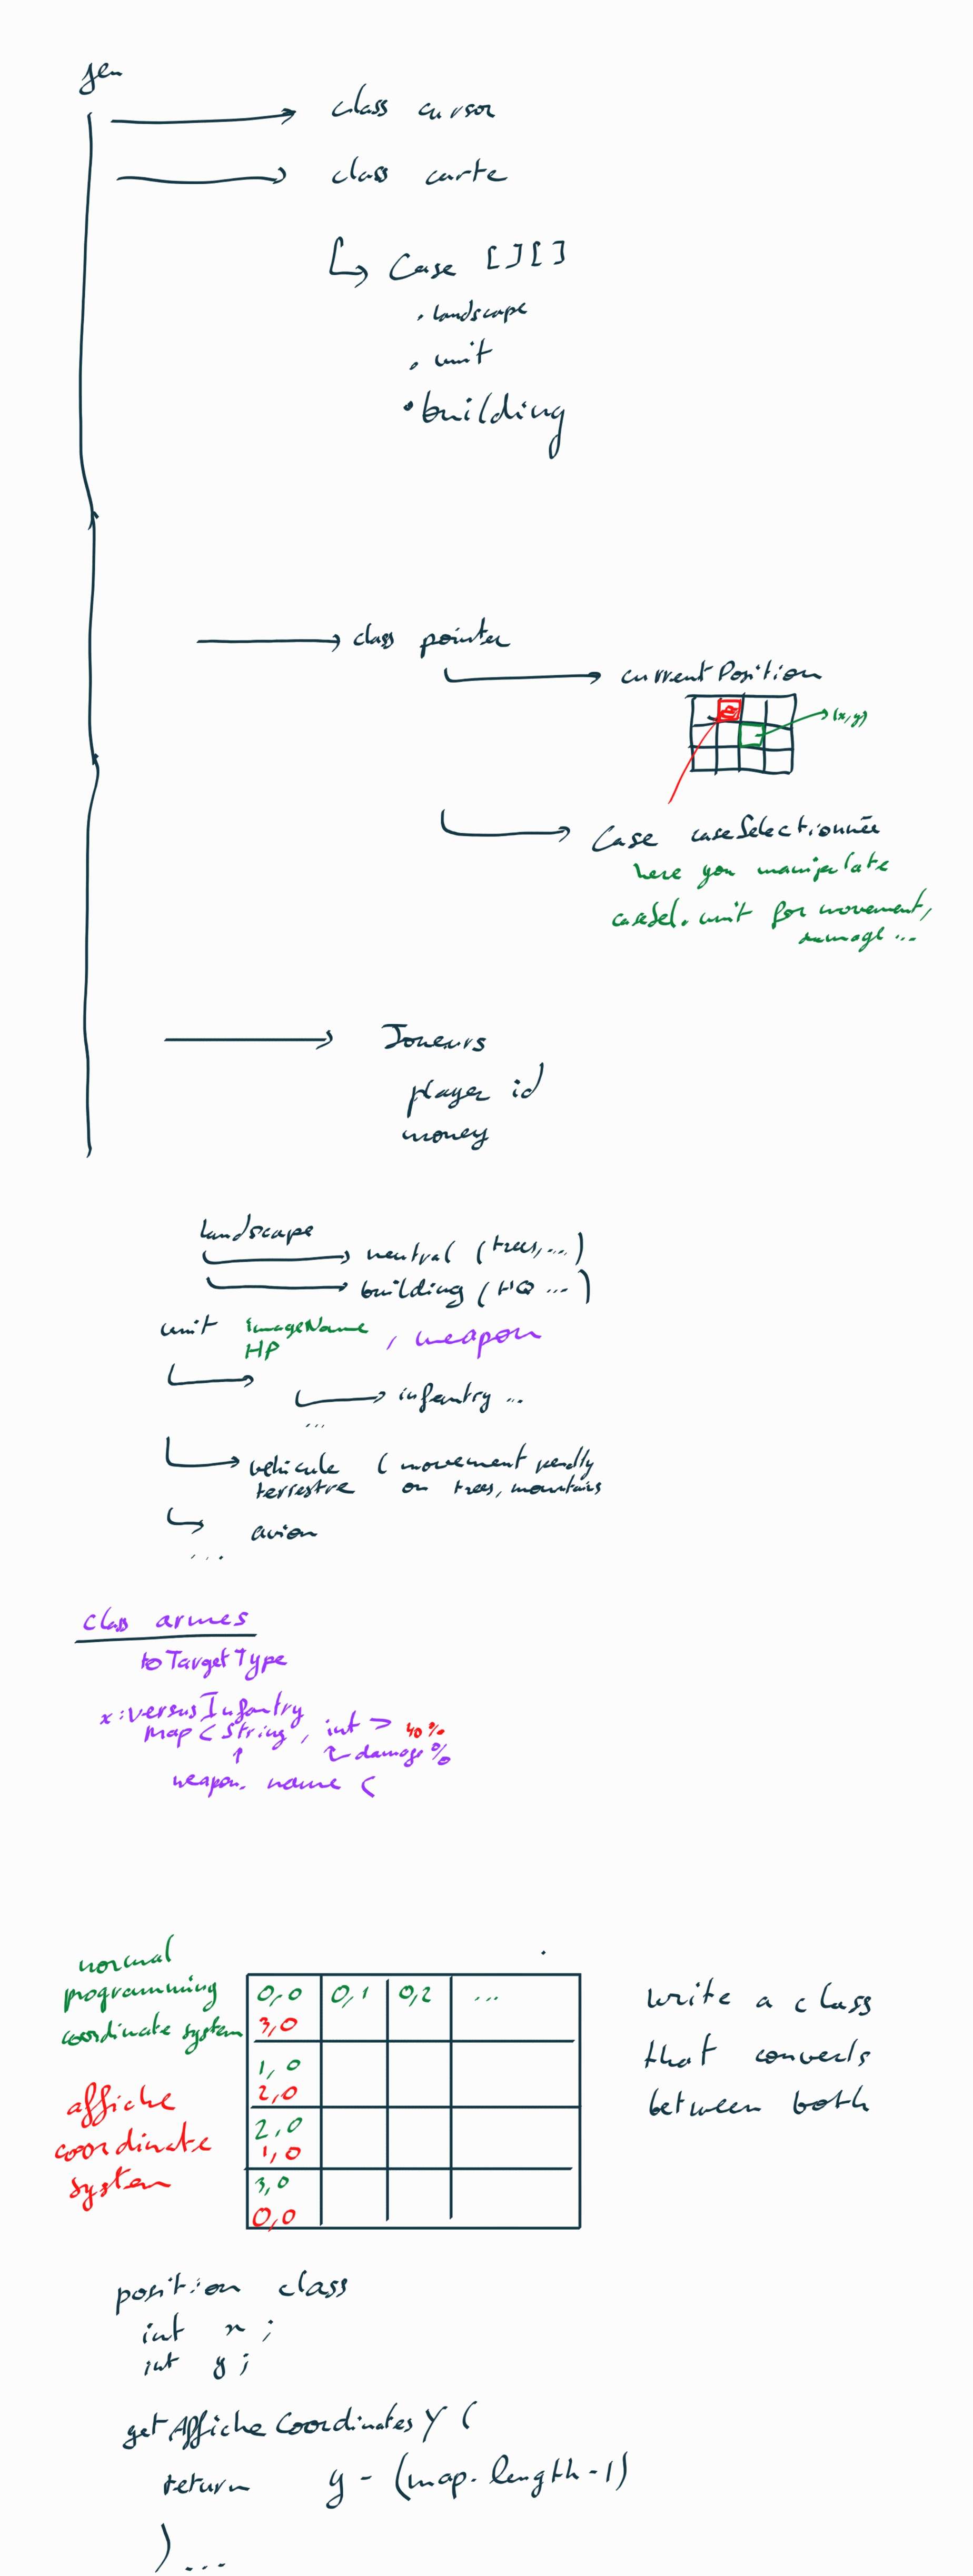 jeu
class cursor
class carte
Case [][]
. landscape
. unit
. building
class pointer
currentPosition
(x,y)
Case caseSelectionnée
here you manipulate
caseSel. unit for movement,
damage ...
Joueurs
player id
money
landscape
neutral (trees,...)
building (HQ ...)
unit imageName , weapon
HP
infantry ...
...
véhicule (movement penalty
terrestre on trees, mountains
avion
...
class armes
toTargetType
x:versusInfantry
map <String, int > 40%
damage %
weapon. name (
normal
programming
coordinate system
affiche
coordinate
system
0,0 0,1 0,2 ...
3,0
1,0
2,0
2,0
1,0
3,0
0,0
write a class
that converts
between both
position class
int x ;
int y ;
getAfficheCoordinatesY (
return y - (map.length-1)
) ...